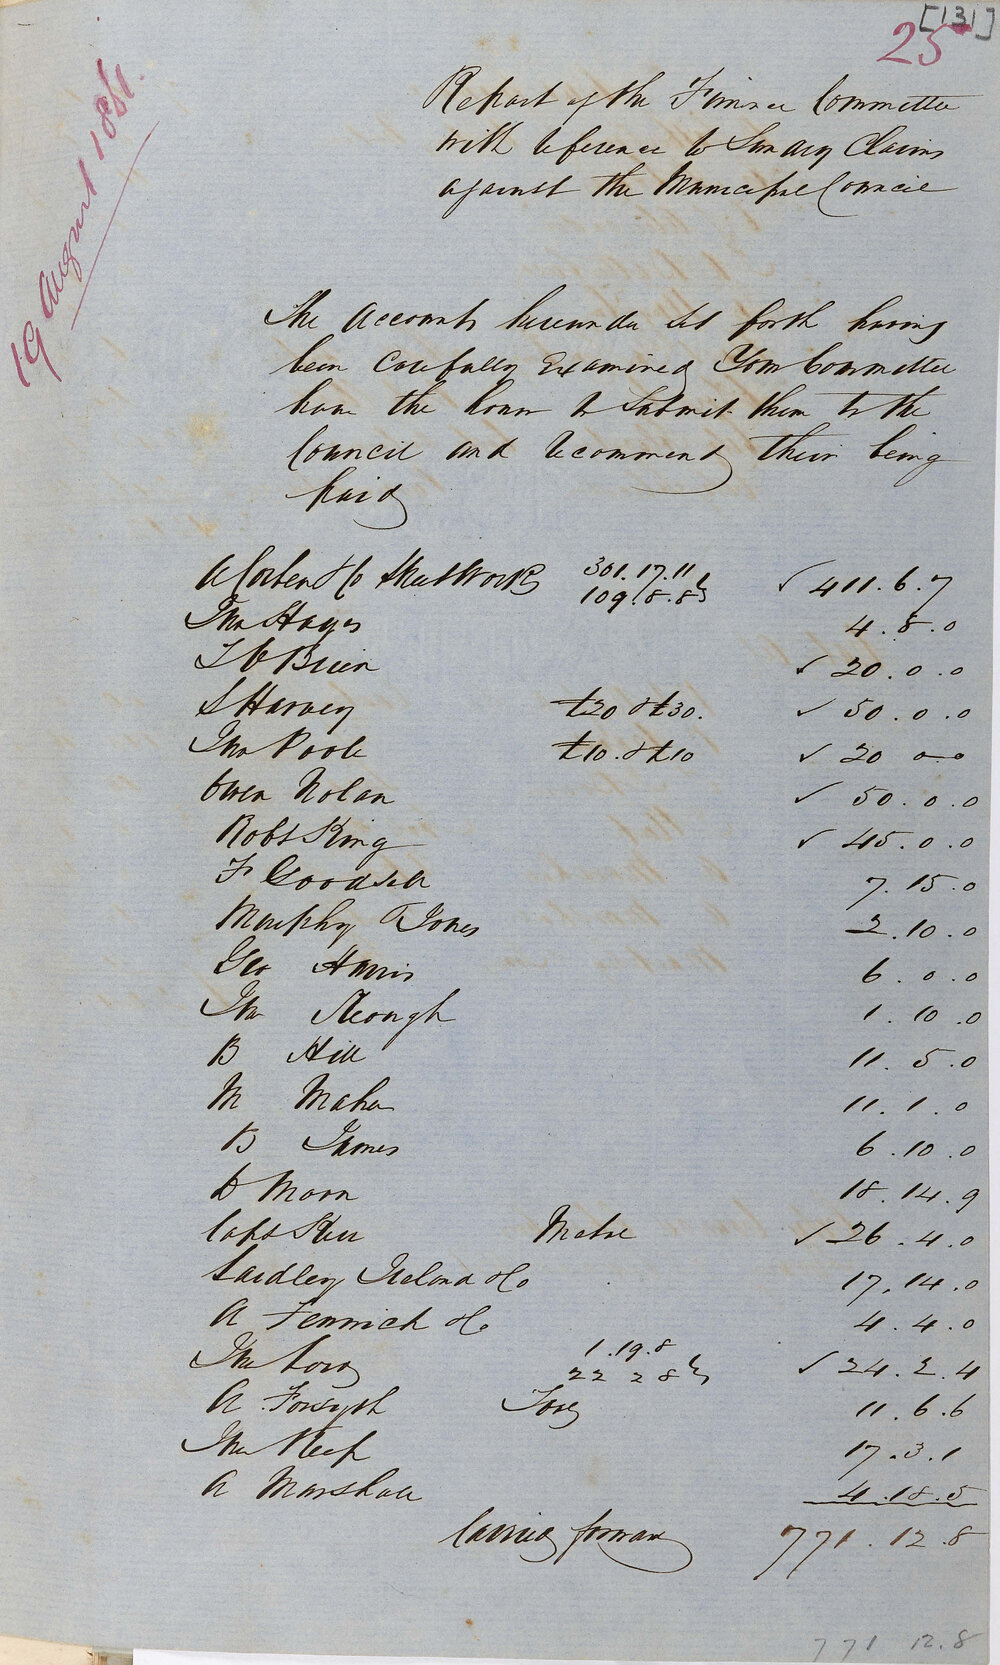 [131]
25
19 August 1861.
Report of the Finance Committee
with reference to Sundry Claims
against the Municipal Council
The Accounts hereunder set forth having
been Carefully Examined Your Committee
have the honor to Submit them to the
Council and recommend their being
paid
A Corben & Co Street Work 301.17.11 109.8.8 } ✓ 411.6.7
Jno Hayes 4.8.0
T O Brien ✓ 20.0.0
S Harvey £20 & £30. ✓ 50.0.0
Jno Poole £10. & £10 ✓ 20 0-0
Owen Nolan ✓ 50.0.0
Robt King ✓ 45.0.0
F Goodsell 7.15.0
Murphy & Jones 2.10.0
Geo Harris 6.0.0
Jno Keough 1.10.0
B Hill 11.5.0
M Maher 11.1.0
B James 6.10.0
D Moon 18.14.9
Capt Kerr Metal ✓ 26.4.0
Laidley Ireland & Co 17.14.0
A Fenwick & Co 4.4.0
Jno 1.19.8 22 2 8 } ✓ 24.2.4
A Forsyth 11.6.6
Jno Keep 17.3.1
A Marshall 4.18.5
Carried forward 771.12.8
771 12.8